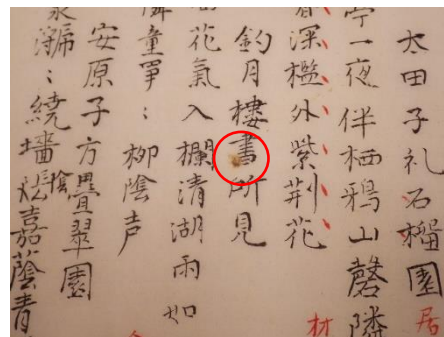 太田子礼石榴園居
亭一夜伴栖鴉山磬隣
深檻外紫荆花
釣月樓書所見
花氣入欄清湖雨如
童爭〻柳陰声
安原子方疊翠園
〻繞墻陰嘉蔭青
材